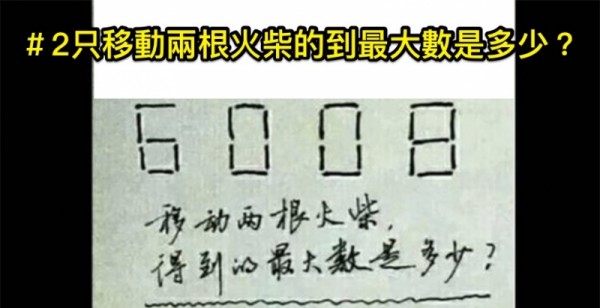 #2只移動兩根火柴的到最大數是多少？
6008
移动两根火柴，
得到的最大数是多少？